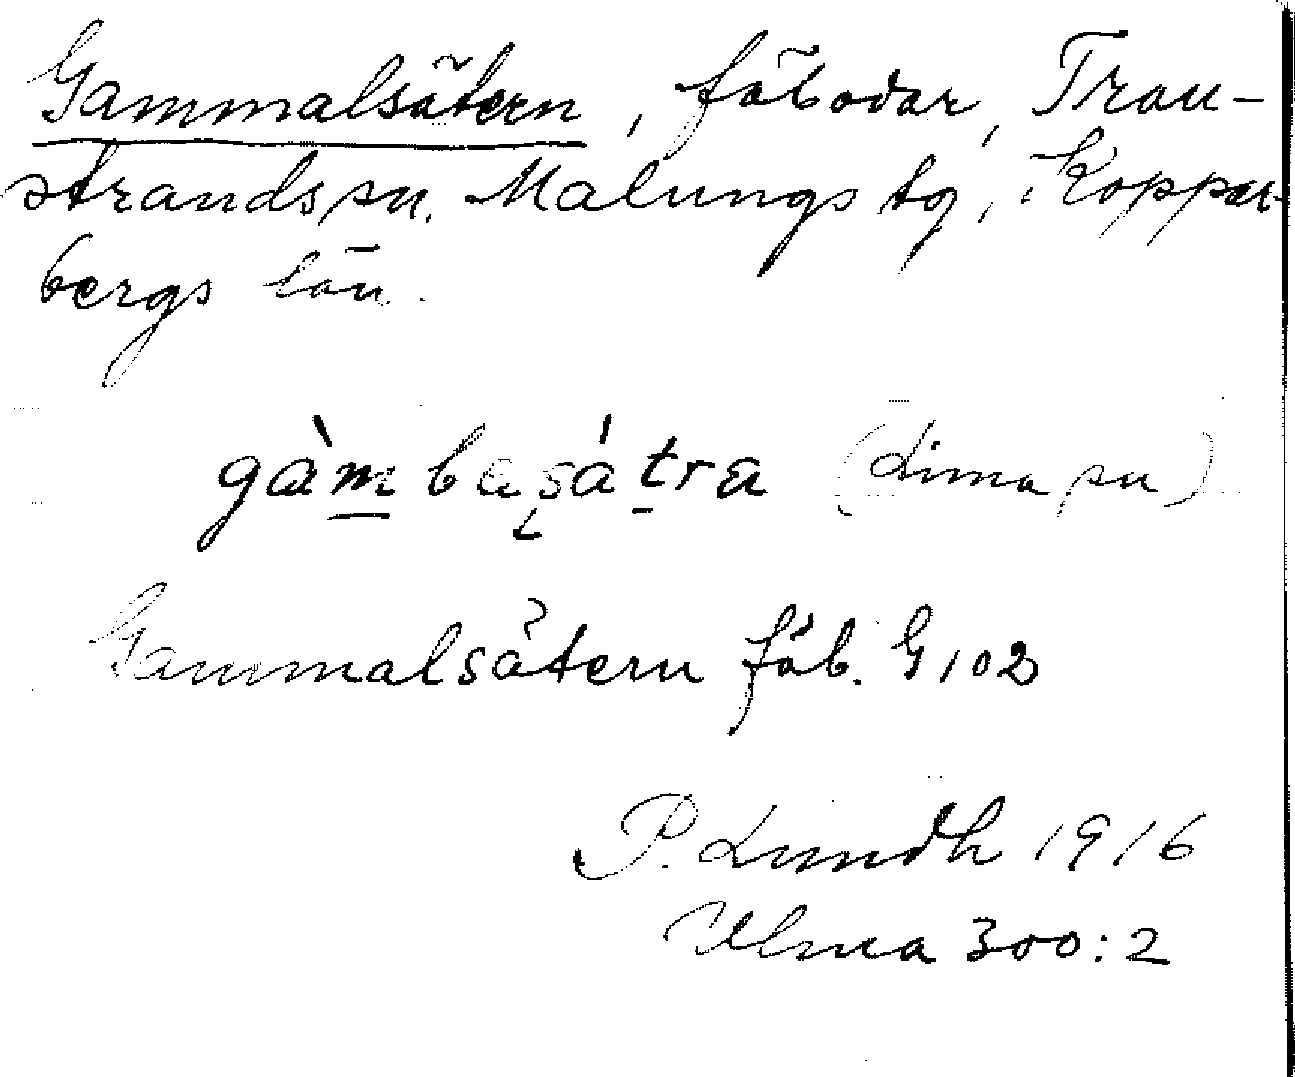 Gammalsätern, fäbodar, Tran-
strands sn. Malungs tg, Koppar-
bergs län.
gàmbasátra (Lima sn)
Gammalsätern fäb. G 102
P. Lundh 1916
Ulma 300:2